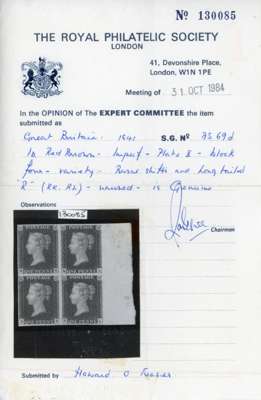 Nº 130085
THE ROYAL PHILATELIC SOCIETY
LONDON
41, Devonshire Place,
London, W1N 1PE
Meeting of 31 OCT 1984
In the OPINION of The EXPERT COMMITTEE the item
submitted as
Great Britain 1841 S.G. Nº
1d Red Brown - Imperf - Plate - block
four - variety - and Long tailed
R - unused - is Genuine
Observations
130085
Chairman
POSTAGE POSTAGE
ONE PENNY ONE PENNY
POSTAGE POSTAGE
ONE PENNY ONE PENNY
Submitted by Howard